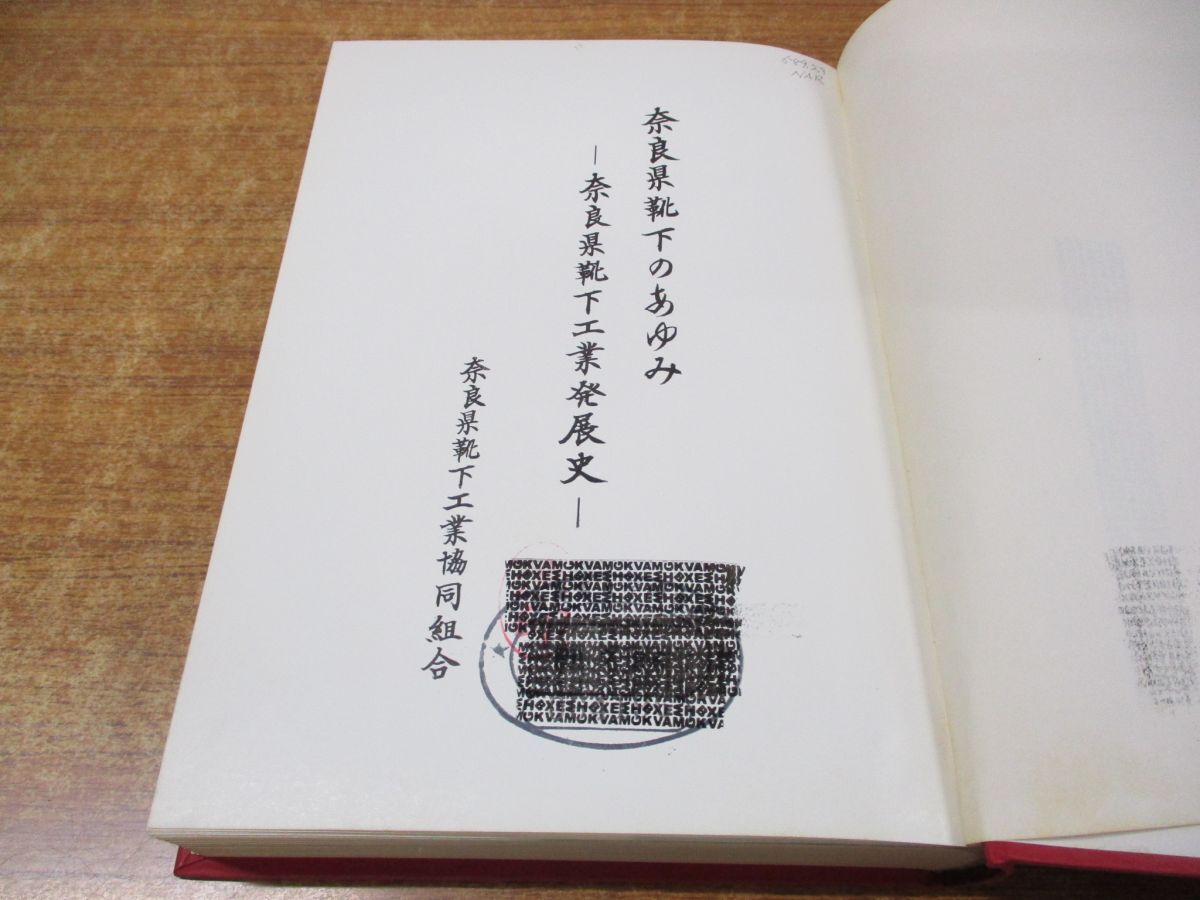 奈良県靴下のあゆみ
―奈良県靴下工業発展史―
奈良県靴下工業協同組合
NAR